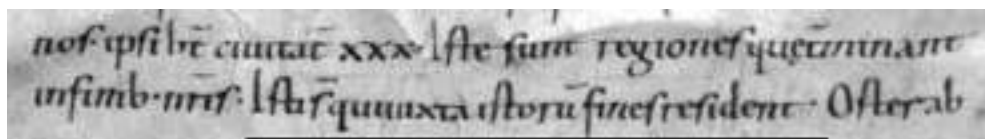 nos· ipsi hn̄t ciuitat̄ xxx· Iste sunt regiones quęt̄minant
infinib· nr̄is· Isti s̄ quiiuxta istorū fines resident· Osterab